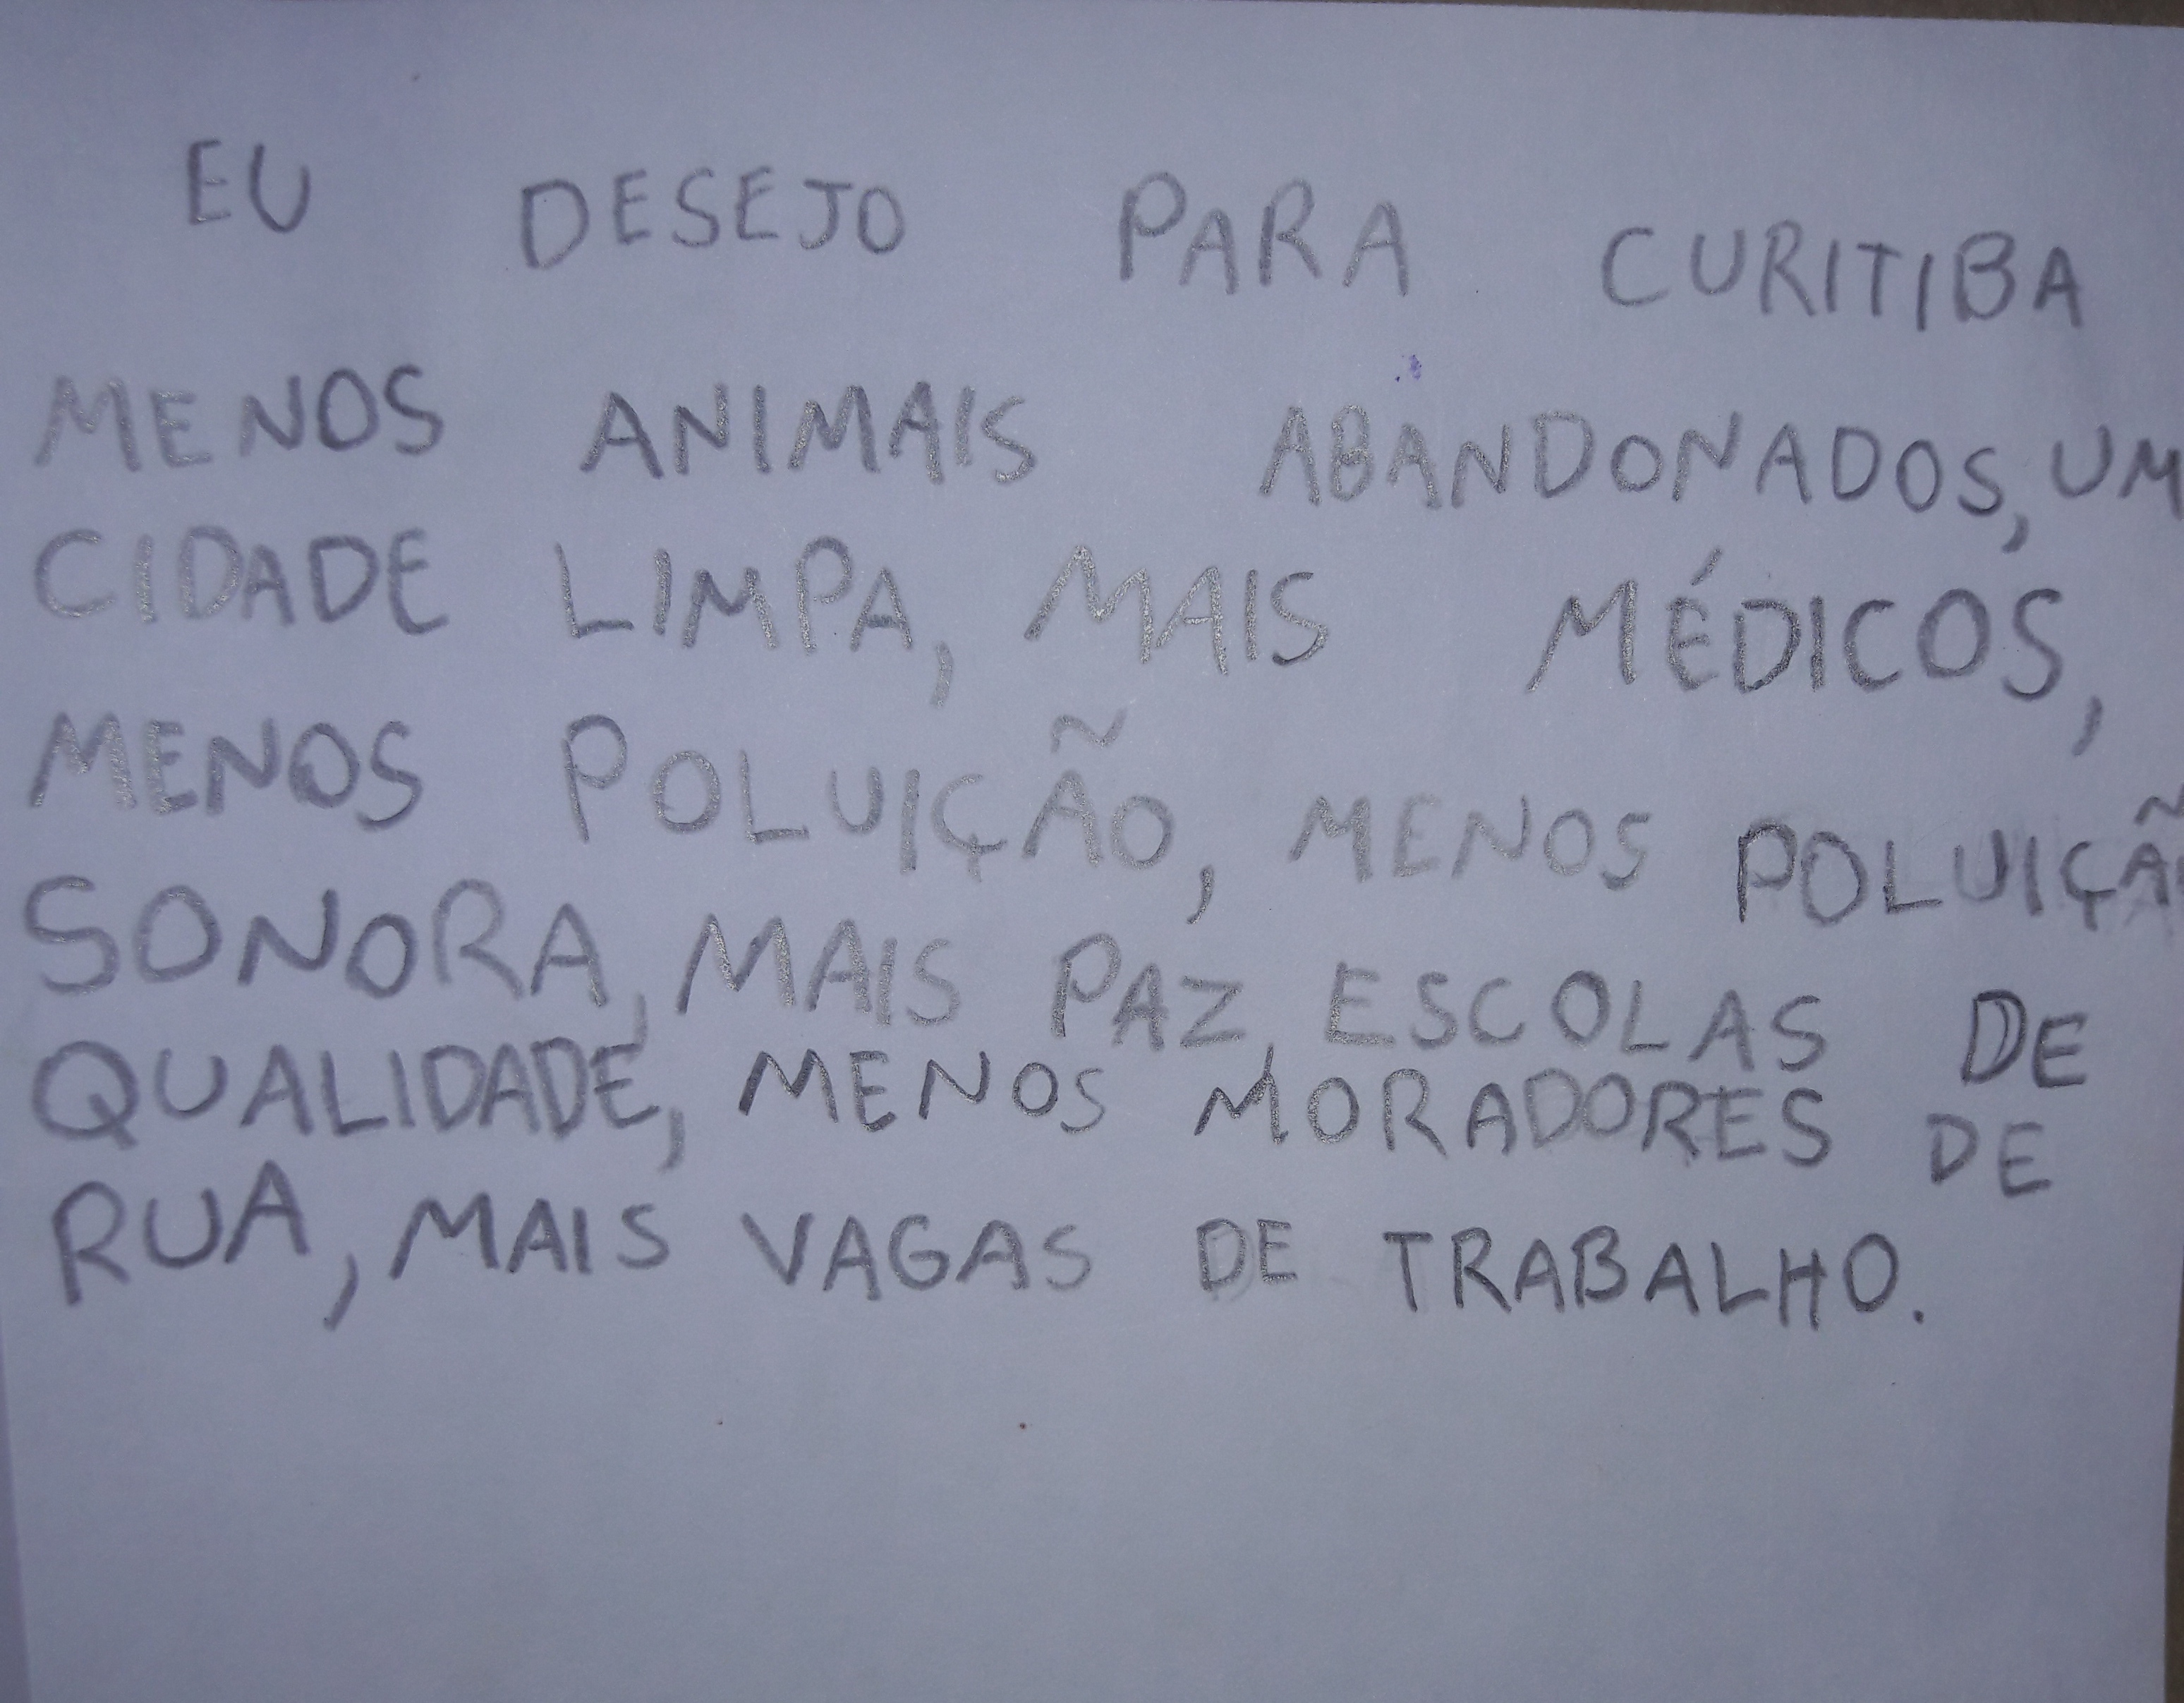 EU DESEJO PARA CURITIBA
MENOS ANIMAIS ABANDONADOS, UM
CIDADE LIMPA, MAIS MÉDICOS,
MENOS POLUIÇÃO, MENOS POLUIÇÃ
SONORA, MAIS PAZ, ESCOLAS DE
QUALIDADE, MENOS MORADORES DE
RUA, MAIS VAGAS DE TRABALHO.